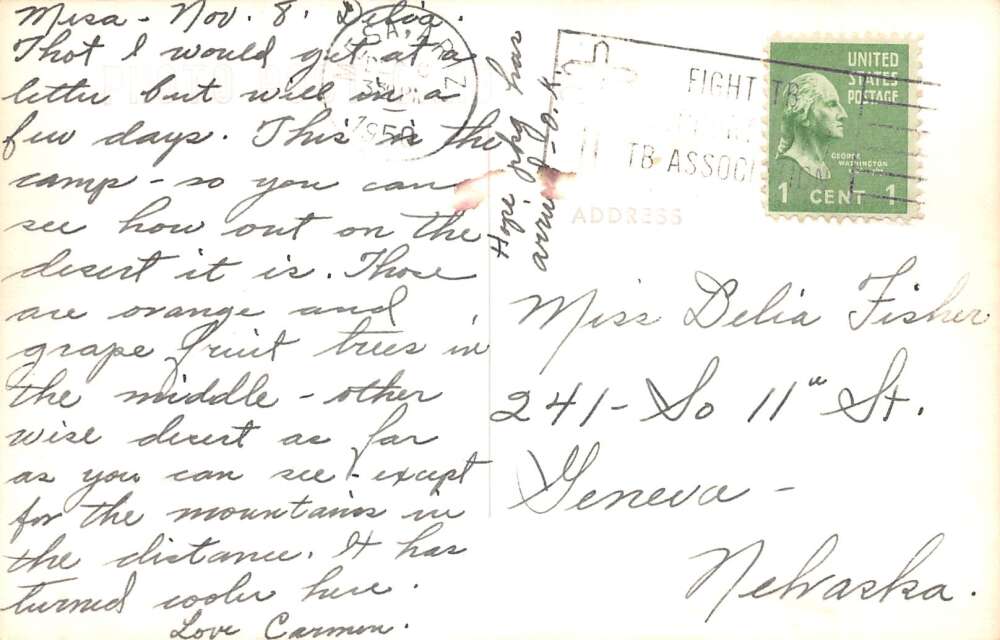 Mesa - Nov. 8. Delia.
Thot I would get at a
letter but will in a
few days. This is the
camp - so you can
see how out on the
desert it is. Those
are orange and
grape fruit trees in
the middle - other
wise desert as far
as you can see - except
for the mountains in
the distance. It has
turned cooler here.
Love Carmen.
Hope pkg has
arrived - O.K.
MESA, ARIZ
1950
FIGHT TB
TB ASSOCI
UNITED
STATES
POSTAGE
GEORGE
WASHINGTON
1 CENT 1
ADDRESS
Miss Delia Fisher
241 - So 11" St.
Geneva -
Nebraska.